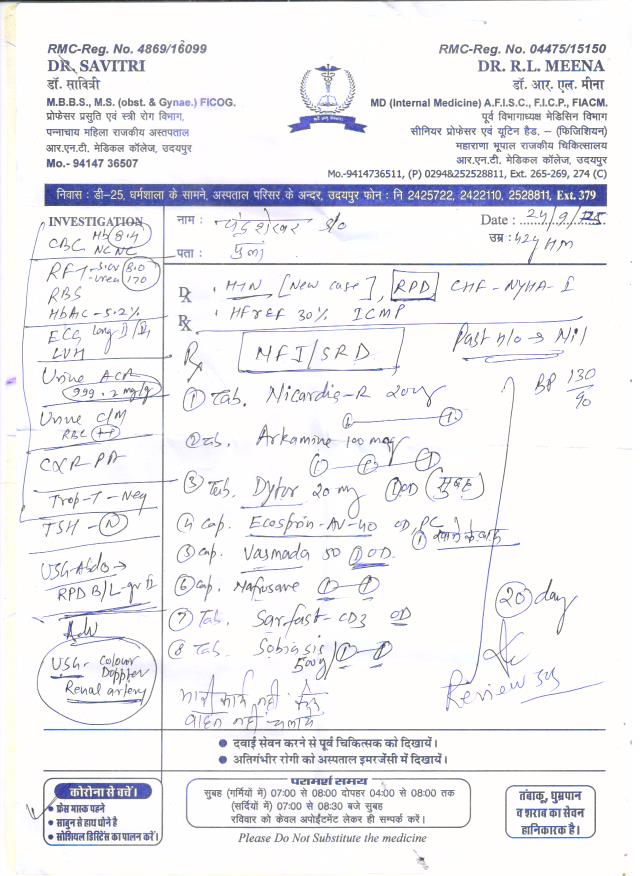 RMC-Reg. No. 4869/16099
DR. SAVITRI
डॉ. सावित्री
M.B.B.S., M.S. (obst. & Gynae.) FICOG.
प्रोफेसर प्रसुति एवं स्त्री रोग विभाग,
पन्नाचाय महिला राजकीय अस्तपताल
आर.एन.टी. मेडिकल कॉलेज, उदयपुर
Mo.- 94147 36507
RMC-Reg. No. 04475/15150
DR. R.L. MEENA
डॉ. आर. एल. मीना
MD (Internal Medicine) A.F.I.S.C., F.I.C.P., FIACM.
पूर्व विभागाध्यक्ष मेडिसिन विभाग
सीनियर प्रोफेसर एवं यूटिन हैड. – (फिजिशियन)
महाराणा भूपाल राजकीय चिकित्सालय
आर.एन.टी. मेडिकल कॉलेज, उदयपुर
Mo.-9414736511, (P) 02948&252528811, Ext. 265-269, 274 (C)
निवास : डी-25, धर्मशाला के सामने, अस्पताल परिसर के अन्दर, उदयपुर फोन : नि 2425722, 2422110, 2528811, Ext. 379
INVESTIGATION
CBC Hb 8.4
NCNC
RFT 8.0
urea 170
RBS
HbAC - 5.2%
ECG Long II
LVH
Urine ACR
999.2 mg/g
Urine C/M
RBC ++
CXR PA
Trop-T - Neg
TSH - N
USG-Abdo →
RPD B/L - gr II
Adv
USG - Colour
Doppler
Renal artery
नाम : चंद्रशेखर S/o
Date : 24/9/25
पता :
उम्र : 42y Hm
Dx • HTN [New case], RPD CHF-NYHA-I
Rx • HFrEF 30% ICMP
Past H/o → Nil
Rx MFI/SRD
BP 130/90
① Tab. Nicardia-R 20mg
② Tab. Arkamine 100 mcg
③ Tab. Dytor 20 mg OD (सुबह)
④ Cap. Ecosprin-AV-40 OD PC
⑤ Cap. Vasmada 50 OD
⑥ Cap. Nafrosave
⑦ Tab. Sarfast-CD3 OD
⑧ Tab. Sobinsis
500mg
20 day
Review SOS
भारी कार्य नहीं करे
वाहन नहीं चलाये
● दवाई सेवन करने से पूर्व चिकित्सक को दिखायें।
● अतिगंभीर रोगी को अस्पताल इमरजेंसी में दिखायें।
कोरोना से बचें।
• फ्रेस मास्क पहने
• साबुन से हाथ धोने है
• सोशियल डिस्टिेंस का पालन करें।
परामर्श समय
सुबह (गर्मियों में) 07:00 से 08:00 दोपहर 04:00 से 08:00 तक
(सर्दियों में) 07:00 से 08:30 बजे सुबह
रविवार को केवल अपोईंटमेंट लेकर ही सम्पर्क करें।
Please Do Not Substitute the medicine
तंबाकू, धुम्रपान
व शराब का सेवन
हानिकारक है।